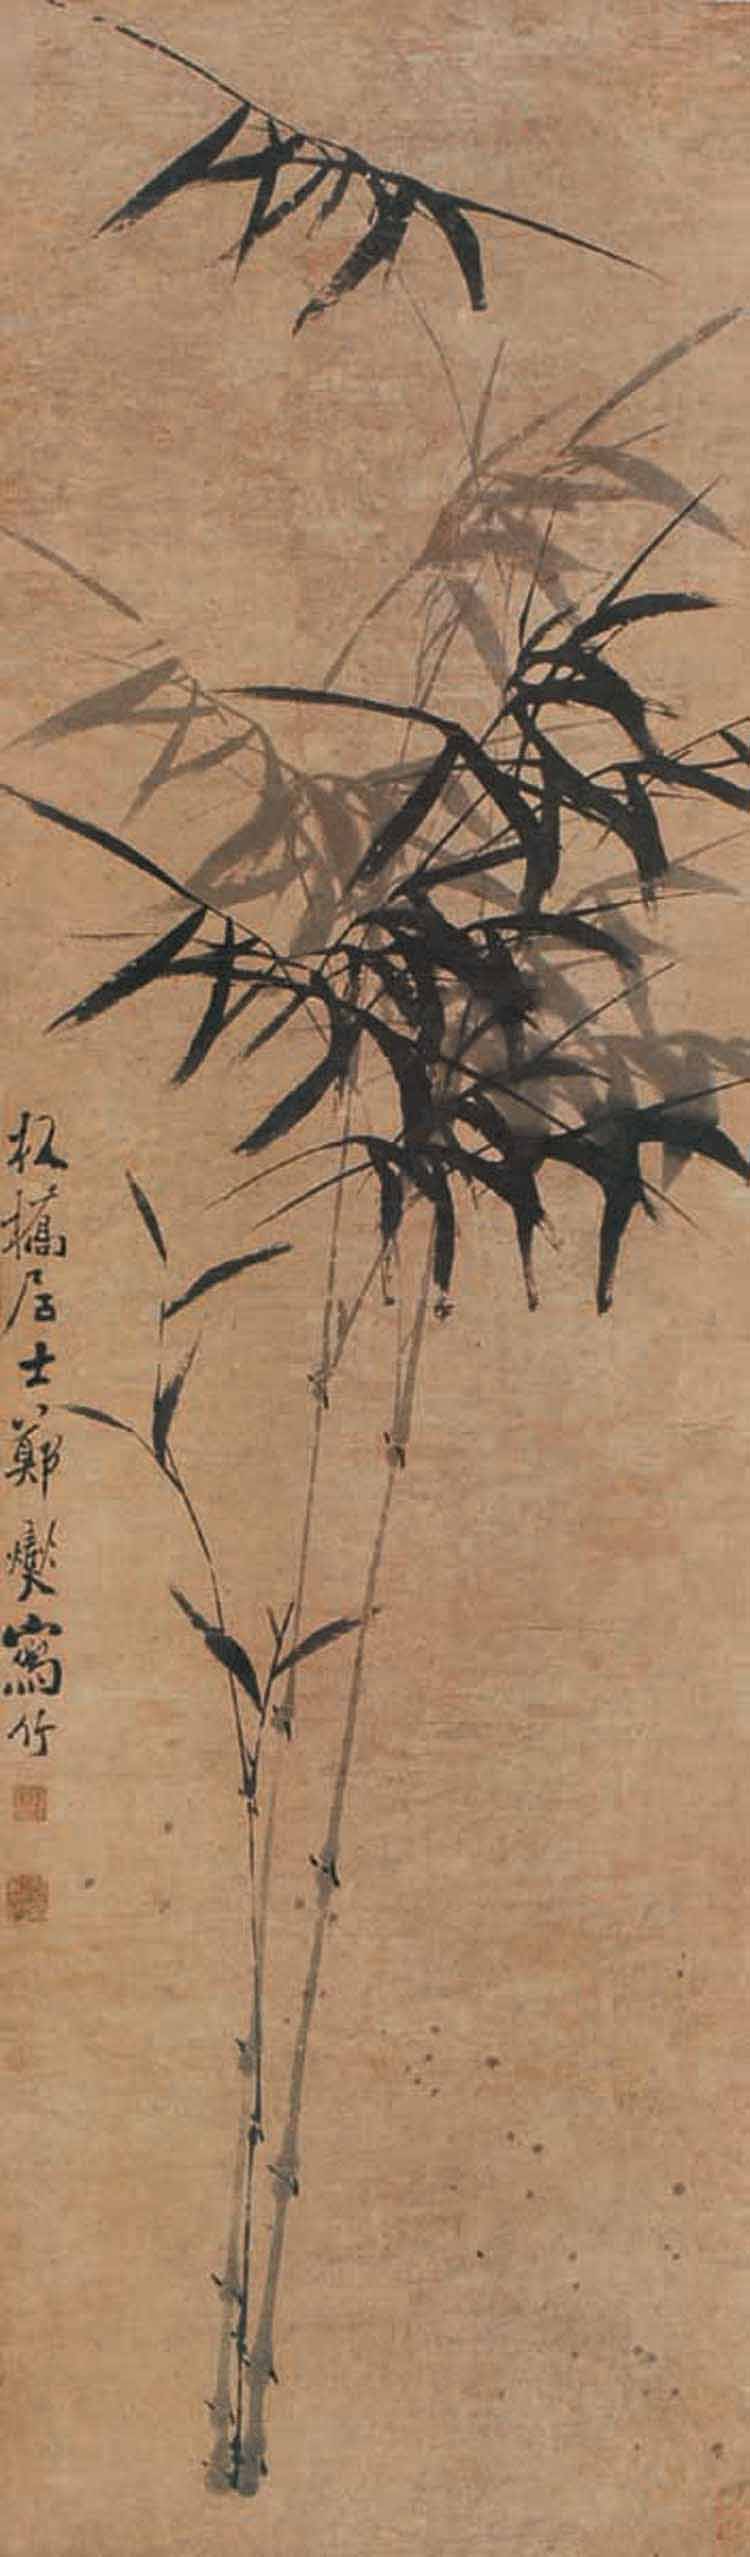 板橋居士鄭燮寫竹